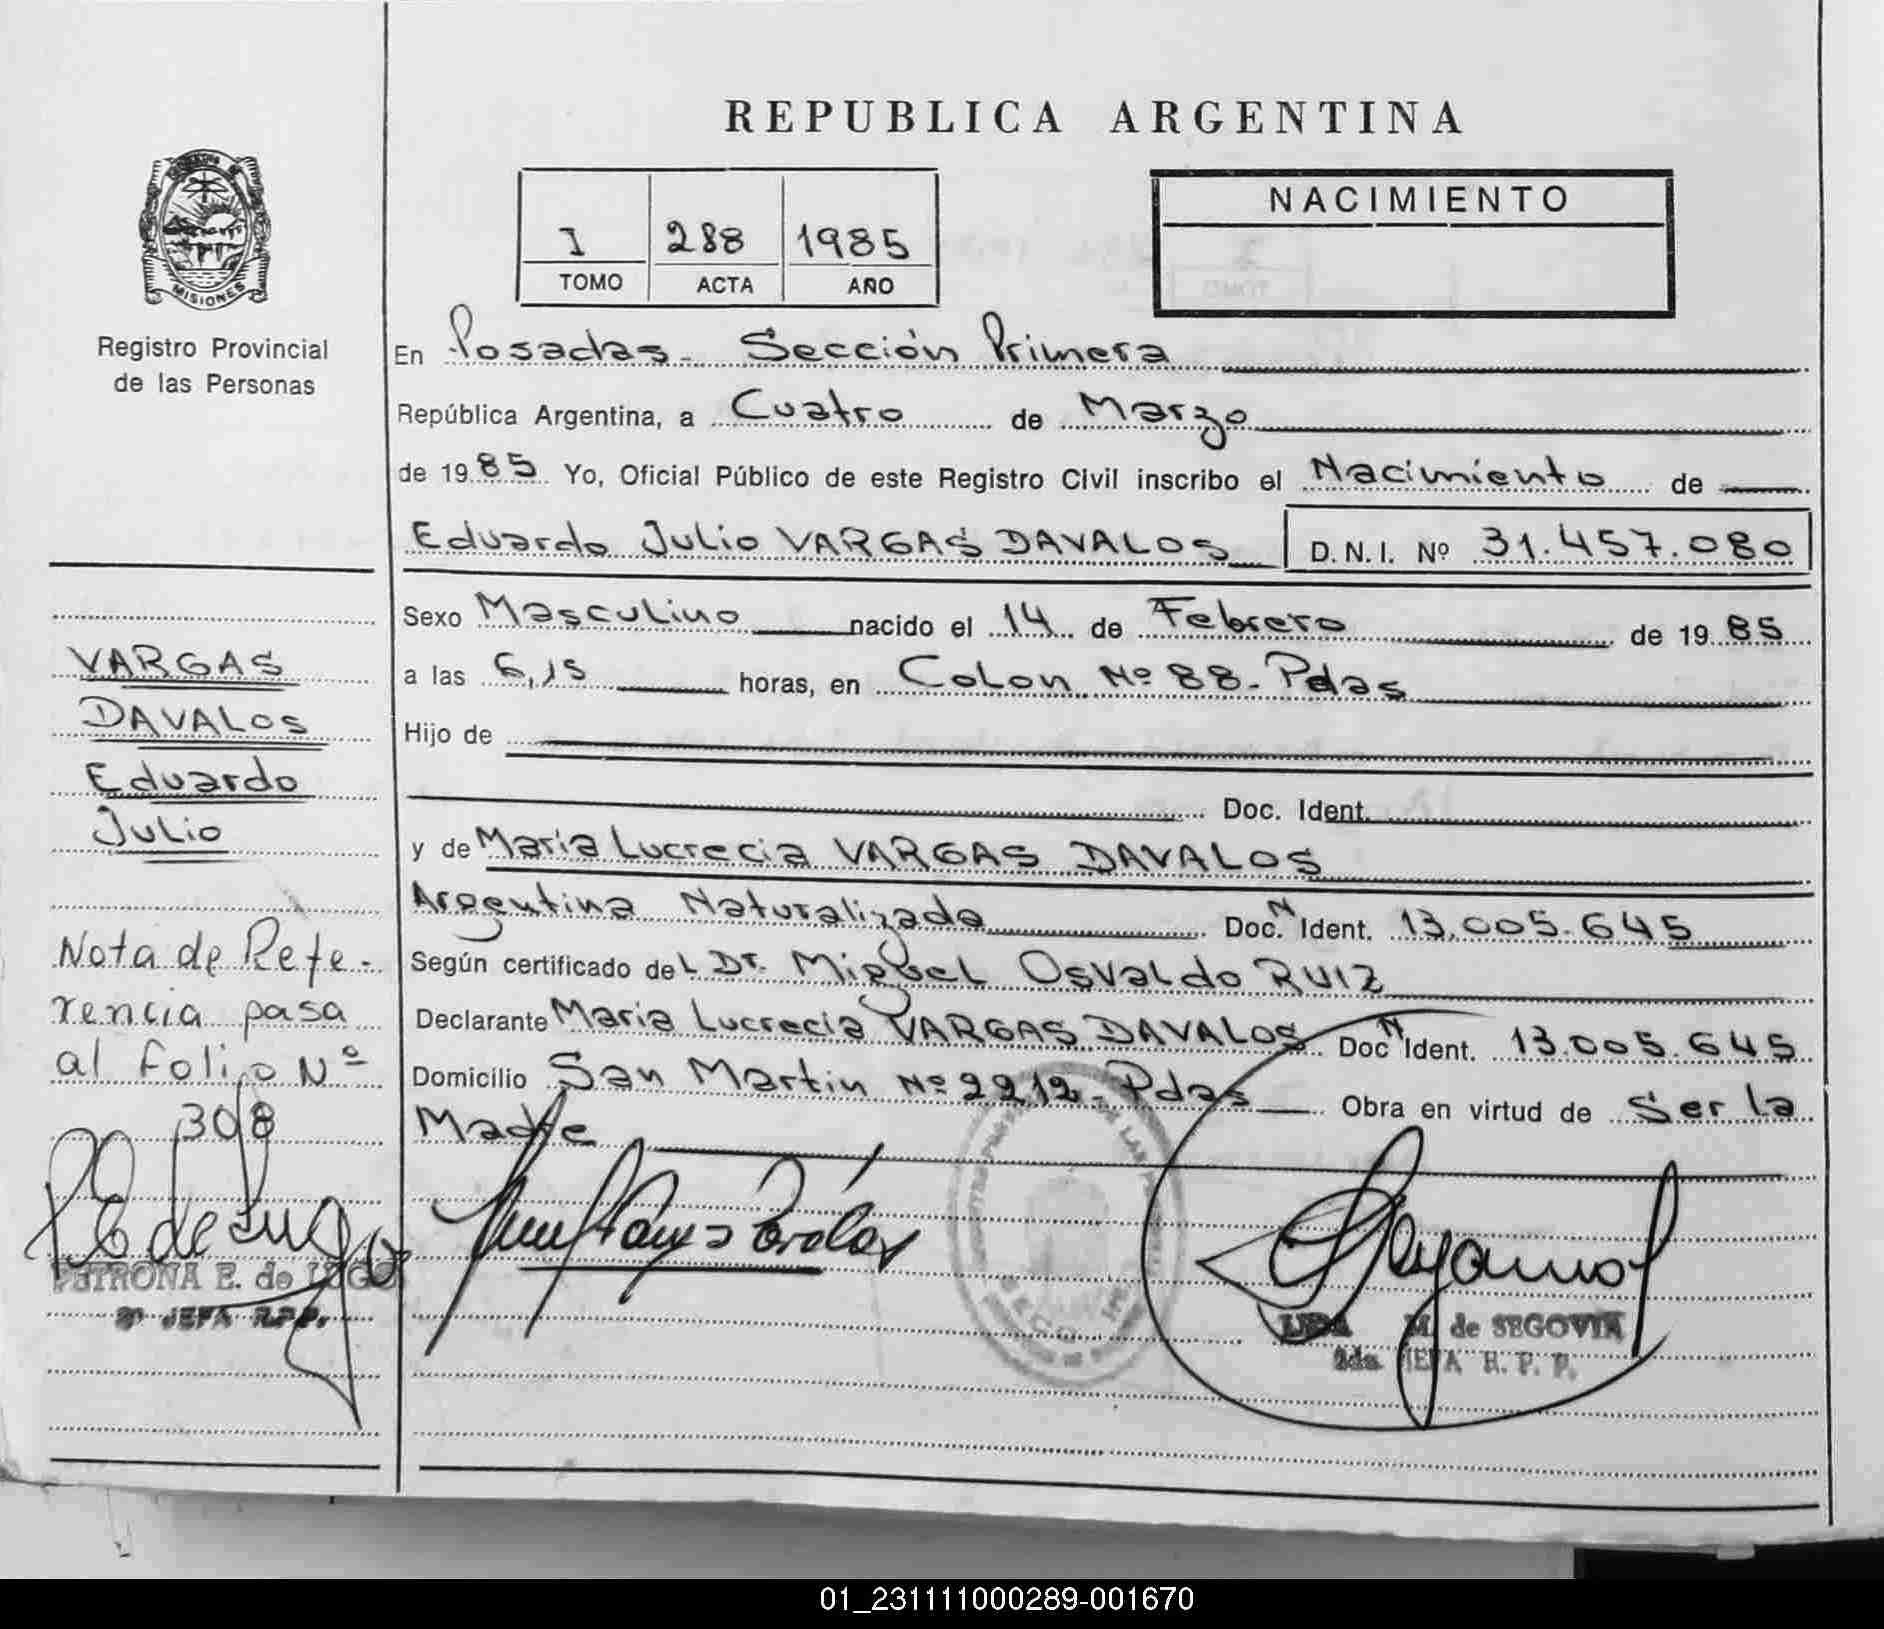 REPUBLICA ARGENTINA
NACIMIENTO
I 288 1985
TOMO ACTA AÑO
MISIONES
Registro Provincial
de las Personas
En Posadas - Sección Primera
República Argentina, a Cuatro de Marzo
de 1985 Yo, Oficial Público de este Registro Civil inscribo el Nacimiento de
Eduardo Julio VARGAS DAVALOS D.N.I. Nº 31.457.080
Sexo Masculino nacido el 14 de Febrero de 1985
a las 6,15 horas, en Colon Nº 88 - Pdas
Hijo de
Doc. Ident.
y de Maria Lucrecia VARGAS DAVALOS
Argentina Naturalizada Doc. N Ident. 13.005.645
Según certificado del Dr. Miguel Osvaldo RUIZ
Declarante Maria Lucrecia VARGAS DAVALOS Doc N Ident. 13.005.645
Domicilio San Martin Nº 2212 - Pdas Obra en virtud de Ser la
Madre
VARGAS
DAVALOS
Eduardo
Julio
Nota de Refe-
rencia pasa
al folio Nº
308
PETRONA E. de LUGO
2ª JEFA R.P.P.
M. de SEGOVIA
2da JEFA R. P. P.
01_231111000289-001670